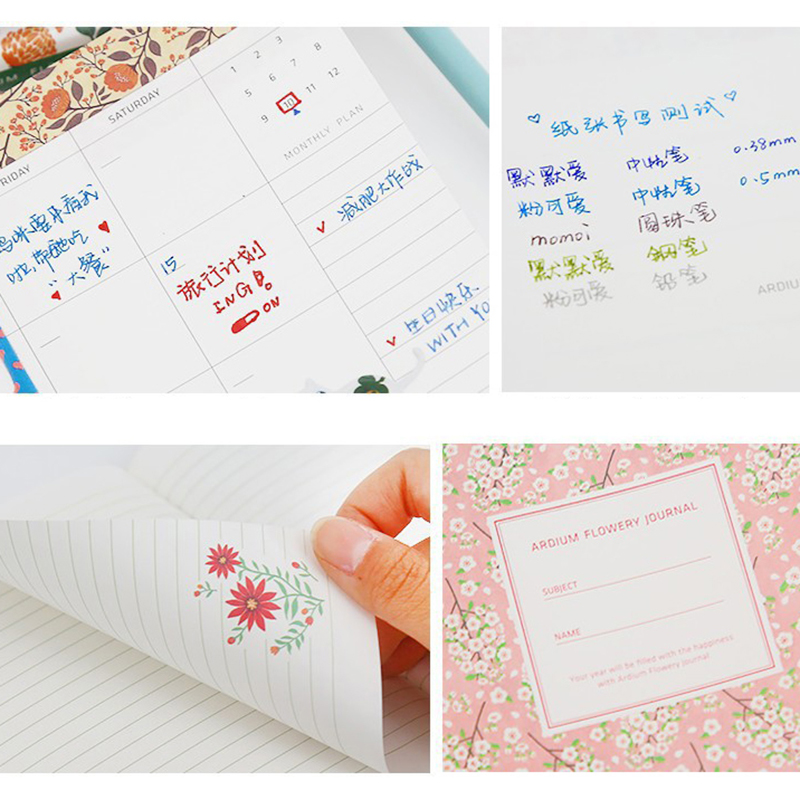 SATURDAY
RIDAY
1 2 3 4
5 6 7 8
9 10 11 12
MONTHLY PLAN
减肥大作战
"大餐"
15
旅行计划
ING
ON
生日快乐
WITH YO
纸张书写测试
默默爱 中性笔 0.38mm
粉可爱 中性笔 0.5mm
momoi 圆珠笔
默默爱 钢笔
粉可爱 铅笔
ARDIU
ARDIUM FLOWERY JOURNAL
SUBJECT
NAME
Your year will be filled with the happiness
with Ardium Flowery Journal